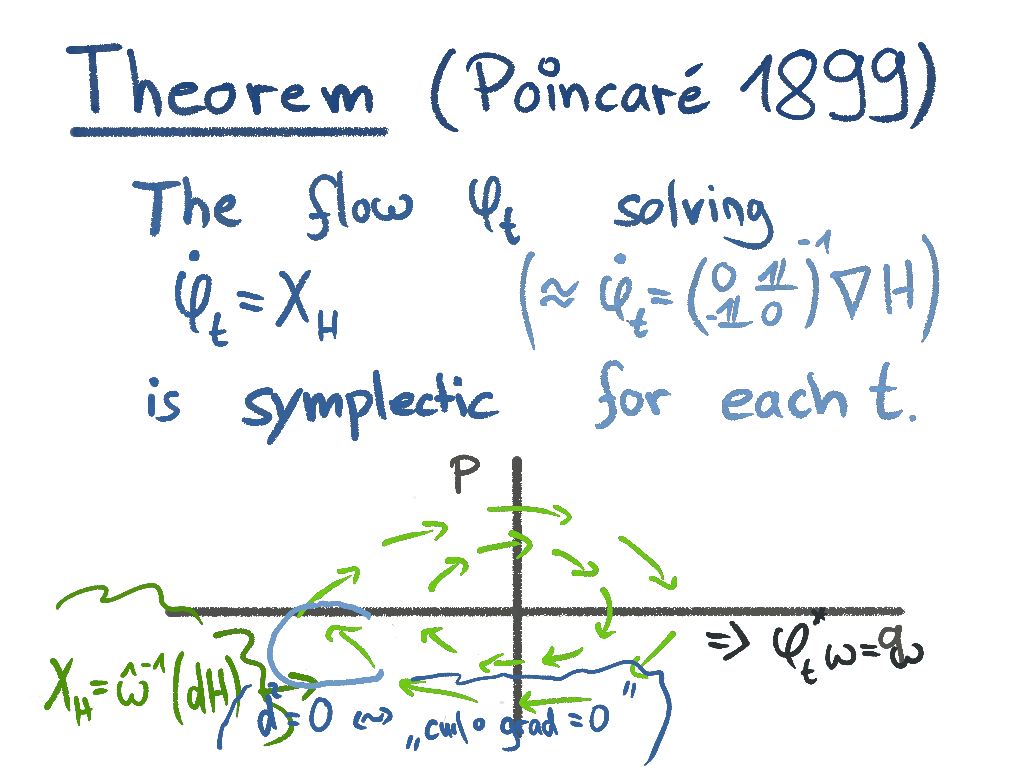 Theorem (Poincaré 1899)
The flow φ_t solving
φ̇_t = X_H (≈ φ̇_t = (0 𝟙 -𝟙 0)^-1 ∇H)
is symplectic for each t.
P
=> φ_t^* ω = ω
X_H = ω̂^-1 (dH)
d² = 0 <~> „curl ∘ grad = 0"